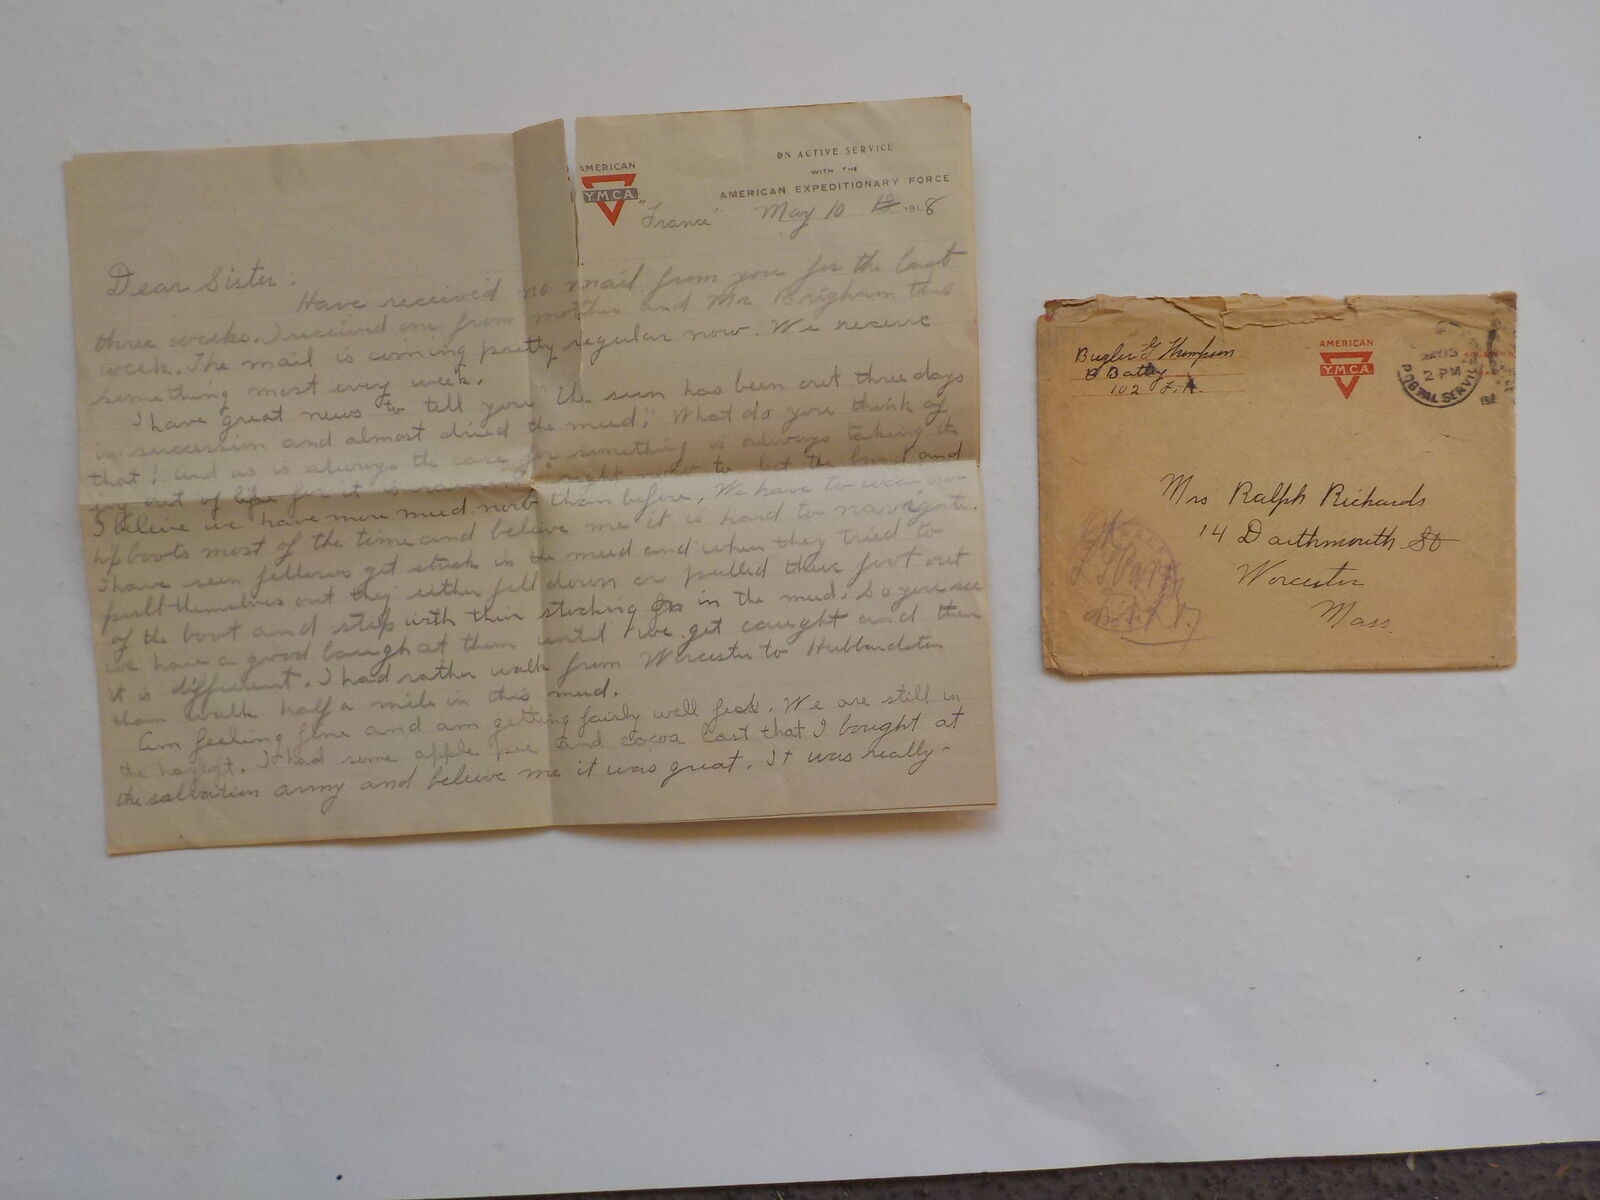 AMERICAN
Y.M.C.A.
ON ACTIVE SERVICE
WITH THE
AMERICAN EXPEDITIONARY FORCE
"France" May 10 18 1918
Dear Sister:
Have received no mail from you for the last
three weeks. I received one from mother and Mr Brigham this
week. The mail is coming pretty regular now. We receive
something most evry week.
I have great news to tell you "the sun has been out three days
in succession and almost dried the mud". What do you think of
that! And as is always the case for something is always taking the
joy out of life for it is raining right now to the band and
I beleive we have more mud now than before. We have to wear our
hip boots most of the time and beleive me it is hard to navigate.
I have seen fellows get stuck in the mud and when they tried to
pull themselves out they either fell down or pulled their foot out
of the boot and step with their stocking in the mud. So you see
we have a good laugh at them until we get caught and then
it is different. I had rather walk from Worcester to Hubbardston
than walk half a mile in this mud.
Am feeling fine and am getting fairly well fed. We are still in
the hayloft. I had some apple pie and cocoa last that I bought at
the salvation army and beleive me it was great. It was really-
Bugler G Thompson
B Battey
102 F.A.
AMERICAN
Y.M.C.A.
2 PM
POSTAL SERVICE
Mrs Ralph Richards
14 Darthmouth St
Worcester
Mass.
OK